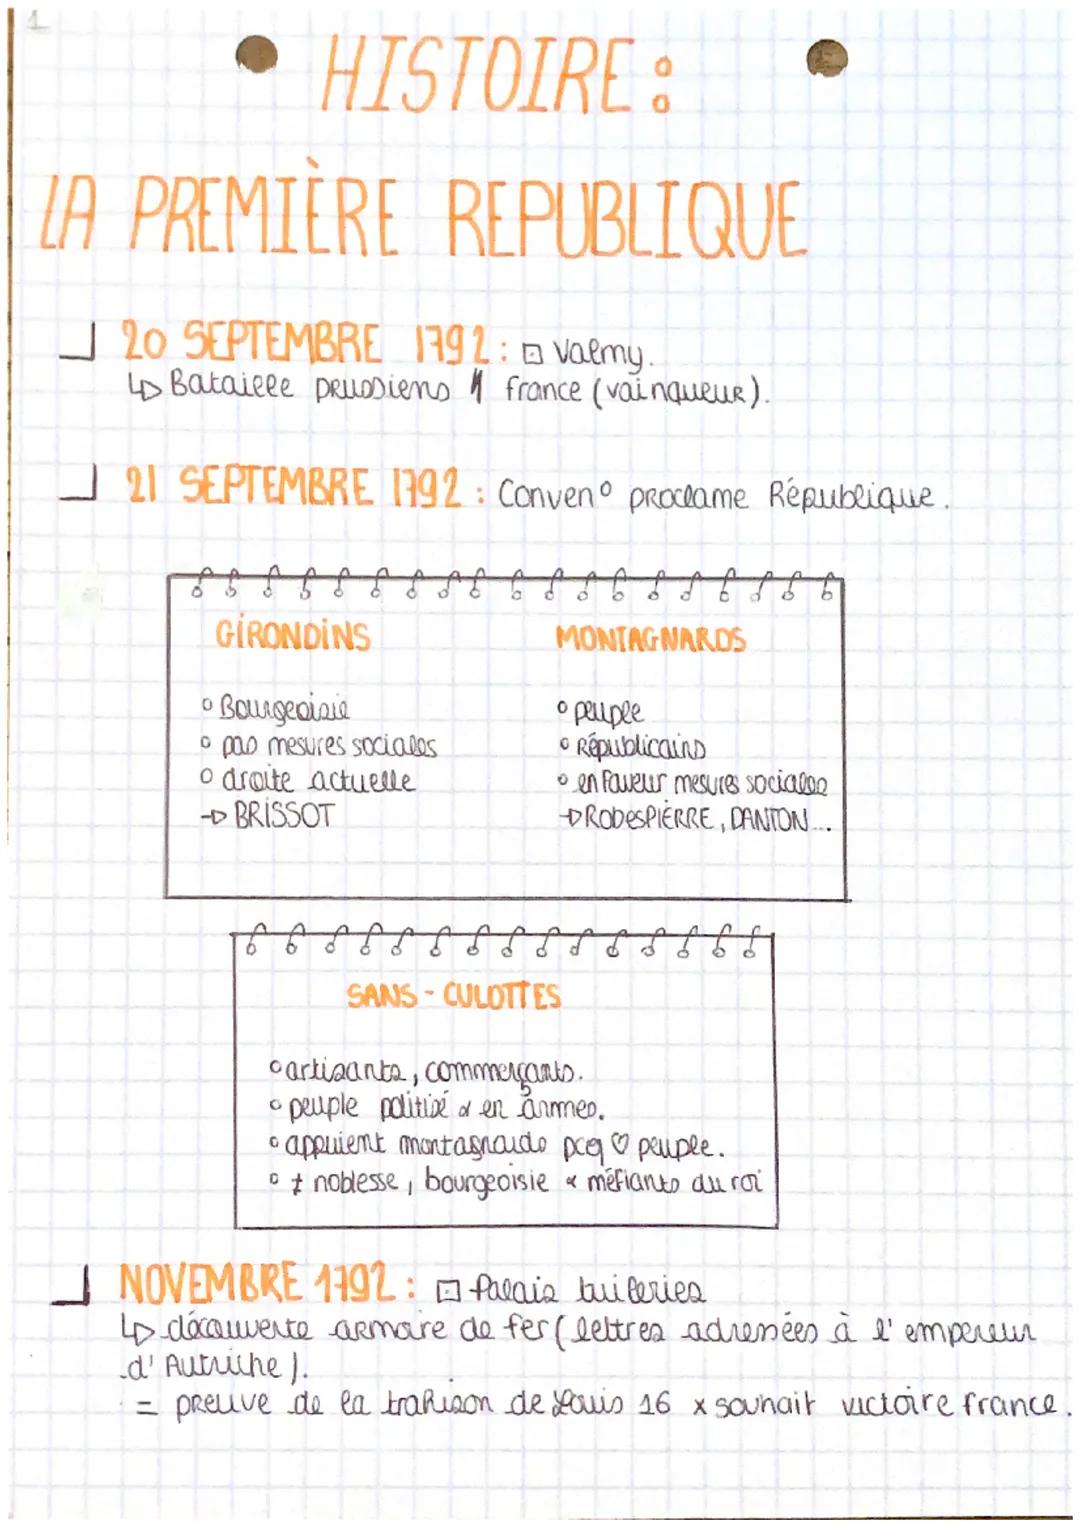 1
HISTOIRE :
LA PREMIÈRE REPUBLIQUE
20 SEPTEMBRE 1792 : ⊡ Valmy.
↳ Bataille prussiens france (vainqueur).
21 SEPTEMBRE 1792 : Conven° proclame République.
GIRONDINS
° Bourgeoisie
° pas mesures sociales
° droite actuelle
→ BRISSOT
MONTAGNARDS
° peuple
° Républicains
° en faveur mesures sociales
→ RObESPIERRE, DANTON...
SANS - CULOTTES
° artisants, commerçants.
° peuple politisé & en armes.
° appuient montagnards pcq ♡ peuple.
° ≠ noblesse, bourgeoisie & méfiants du roi
NOVEMBRE 1792 : ⊡ Palais tuileries
↳ découverte armoire de fer (lettres adressées à l'empereur
d'Autriche).
= preuve de la trahison de Louis 16 x souhait victoire france.